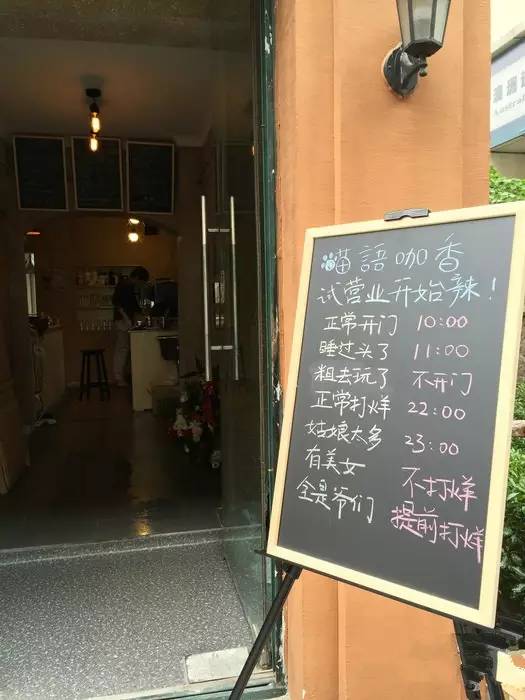 喵語咖香
试营业开始辣！
正常开门 10:00
睡过头了 11:00
粗去玩了 不开门
正常打烊 22:00
姑娘太多 23:00
有美女 不打烊
全是爷们 提前打烊